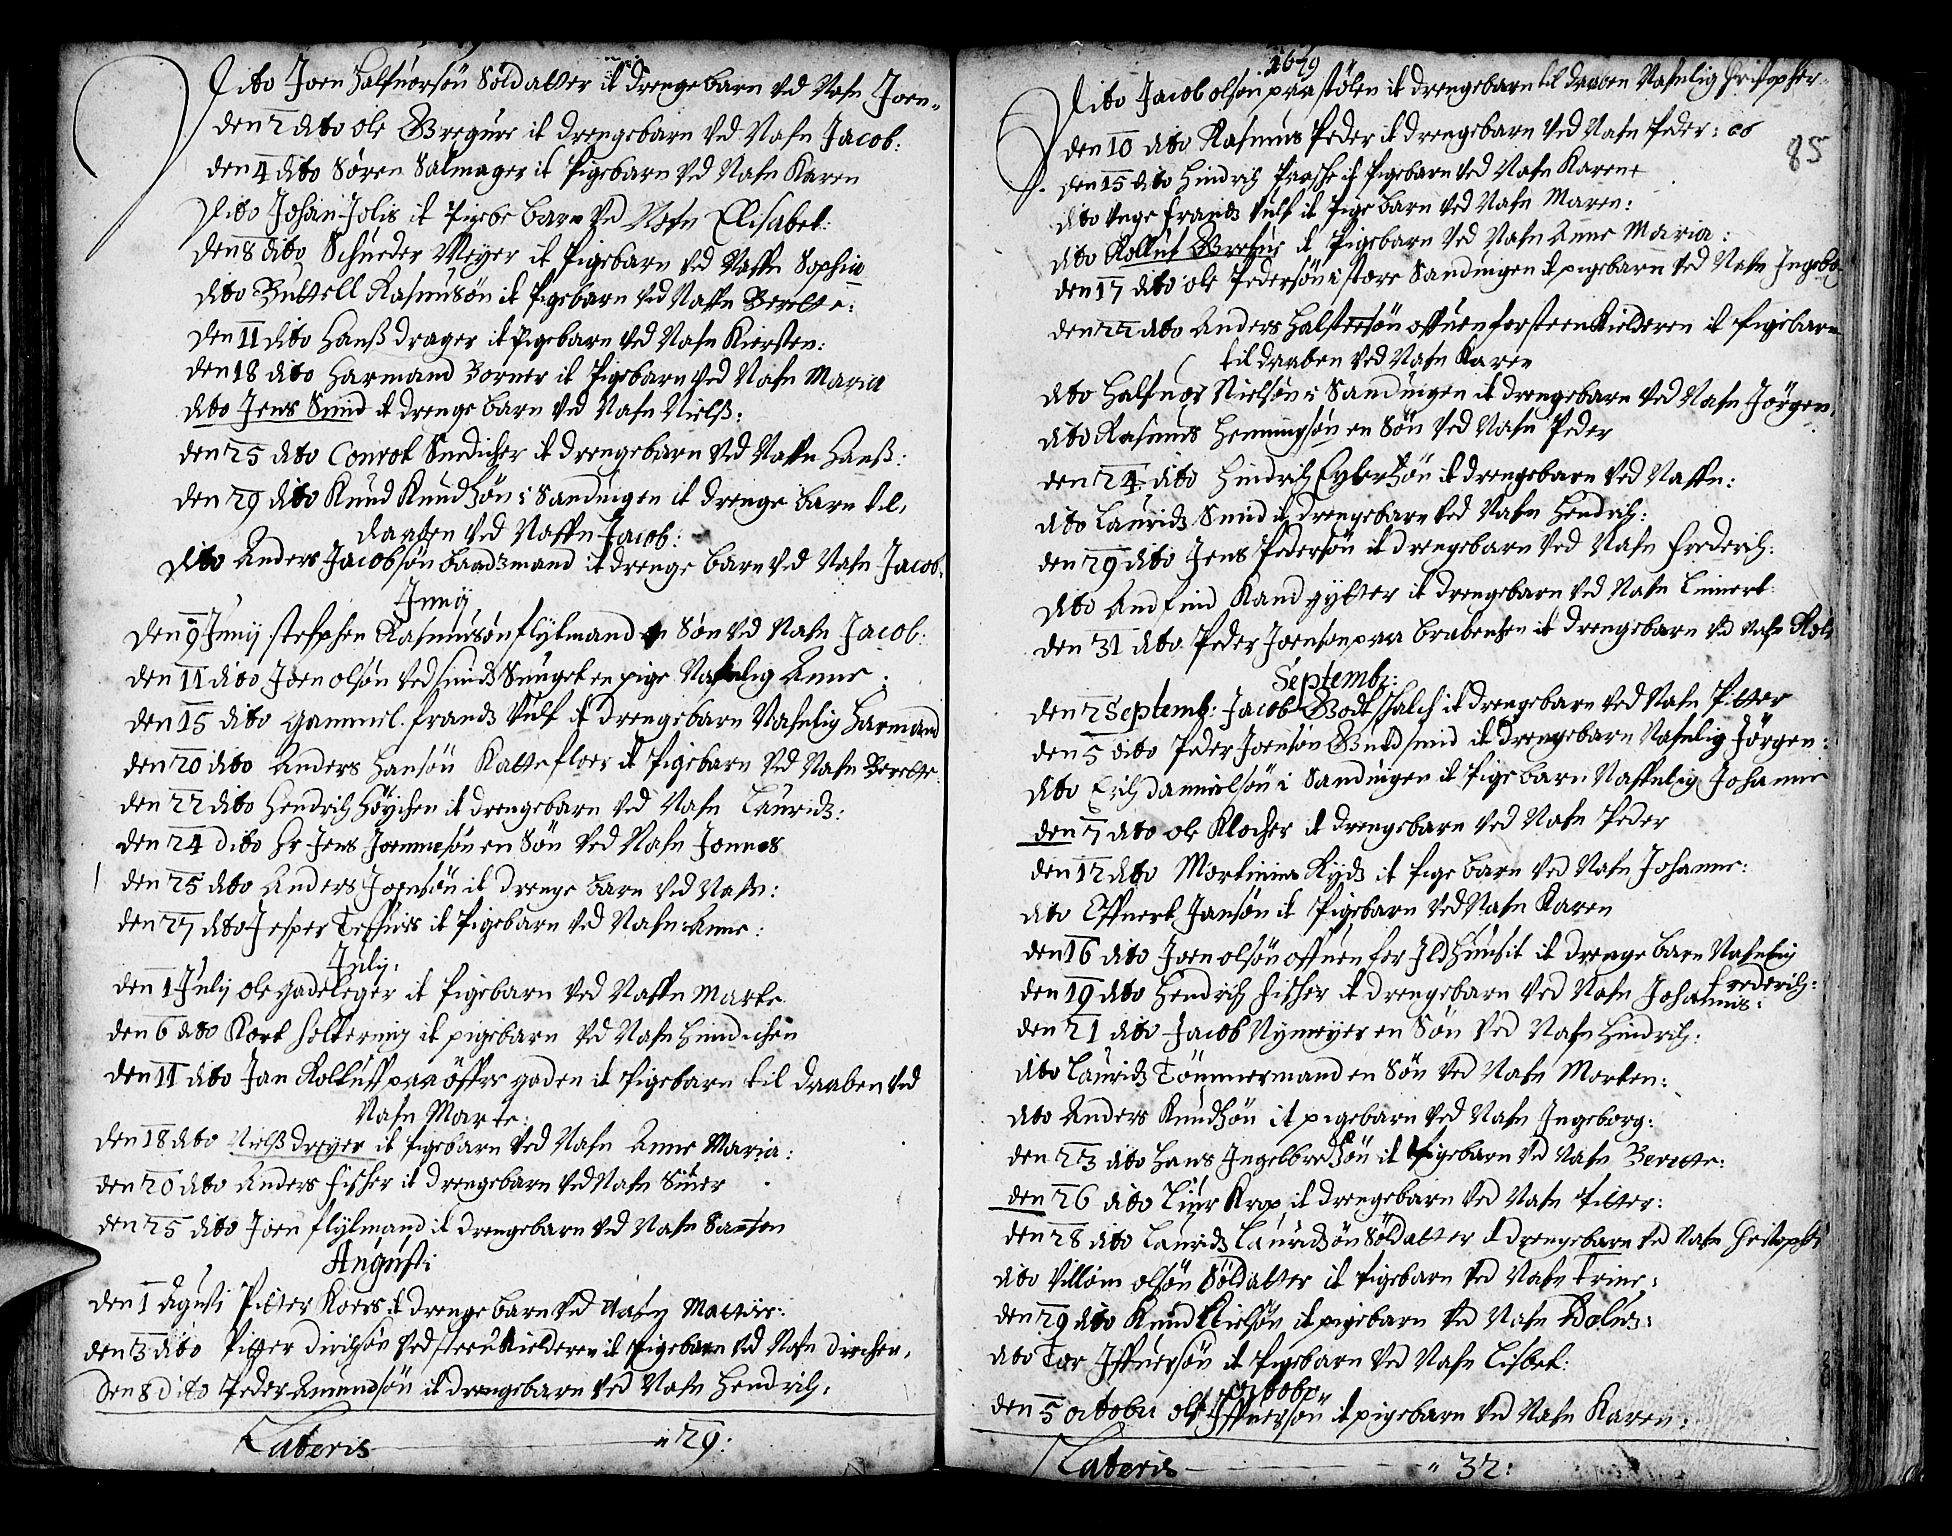 Dito Joen Halfuorsøn Soldatter it drengebarn ved Nafn Joen
den 2 dito ole Bregure it drengebarn ved Nafn Jacob:
den 4 dito Søren Salmager it Pigebarn ved Nafn Karen
Dito Johan Jolis it Pigebarn ved Nafn Elisabet:
den 8 dito Schreder Meyer it Pigebarn ved Naffn Sophia
dito Buttell Rasmusøn it Pigebarn ved Naffn Berette:
den 11 dito Hanß drager it Pigebarn ved Nafn Kiersten:
den 18 dito Harmand Borner it Pigebarn ved Nafn Maria
dito Jens Smid it drenge barn ved Nafn Nielß:
den 25 dito Conrot Snedicher it drengebarn ved Naffn Hanß:
den 29 dito Knud Knudsøn i Sanduigen it drenge barn til
daaben ved Naffn Jacob:
Dito Anders Jacobsøn baadzmand it drenge barn ved Nafn Jacob.
Junij
den 9 Junij stephen Rasmusøn flytmand en Søn ved Nafn Jacob:
den 11 dito Joen olsøn ved smids Smuget en pige Nafnlig Anne:
den 15 dito gammel frandz Vulf it drengebarn Nafnlig Harmand
den 20 dito Anders Hansøn Kattefloer it Pigebarn ved Nafn Berette
den 22 dito Hendrich Höychen it drengebarn ved Nafn Lauridz:
den 24 dito Hr Jens Joennesøn en Søn ved Nafn Jonnes
den 25 dito Anders Joensøn it drenge barn ved Nafn:
den 27 dito Jesper Teffuis it Pigebarn ved Nafn Anne:
July:
den 1 July ole gadeleger it Pigebarn ved Naffn Marte
den 6 dito Kort Helkernig it pigebarn ved Nafn Hindichen
den 11 dito Jan Rolluff paa öffre gaden it Pigebarn til daaben ved
Nafn Marte:
den 18 dito Nielß dreyer it Pigebarn ved Nafn Anne Maria:
den 20 dito Anders fischer it drengebarn ved Nafn Siuer
den 25 dito Joen flytmand it drengebarn ved Nafn Samson
Augusti
den 1 Agusti Pitter Koers it drengebarn ved Nafn Mattis:
den 3 dito Pitter dirchsøn ved steen Kielderen it Pigebarn ved Nafn dirchen.
den 8 dito Peder Amundsøn it drengebarn ved Nafn Hendrich:
Lateris 29:
1679
85
Dito Jacob olsøn paa stølen it drengebarn til daaben Nafnlig Cristopher
den 10 dito Rasmus Peder it drengebarn ved Nafn Peder:
den 15 dito Hindrich Paasche it Pigebarn ved Nafn Karen
dito unge frandz Vulf it Pigebarn ved Nafn Maren:
dito Rolluf it Pigebarn ved Nafn Anne Maria:
den 17 dito ole Pedersøn i store Sanduigen it pigebarn ved Nafn Ingebo
den 22 dito Anders Halstensøn offuen for steen Kielderen it Pigebarn
til daaben ved Nafn Karen
dito Halfuor Nielsøn i Sanduigen it drengebarn ved Nafn Jörgen.
dito Rasmus Hemingsøn en Søn ved Nafn Peder
den 24 dito Hindrich Eylertsøn it drengebarn ved Naffn:
dito Lauridz Smid it drengebarn ved Nafn Hendrich:
den 29 dito Jens Pedersøn it drengebarn ved Nafn Frederich:
dito Andfind Kandgyter it drengebarn ved Nafn Linert
den 31 dito Peder Joensøn paa brabenhen it drengebarn ved Nafn
Septemb:
den 2 Septemb: Jacob Bodt schalch it drengebarn ved Nafn Pitter
den 5 dito Peder Joensøn Buldsmid it drengebarn Nafnlig Jörgen:
dito Erich danielsøn i Sanduigen it Pige barn Naffnlig Johanne
den 7 dito ole Klocher it drengebarn ved Nafn Peder
den 12 dito Mortinius Ryds it Pige barn ved Nafn Johanne:
dito Effuert Jansøn it Pigebarn ved Nafn Karen
den 16 dito Joen olsøn offuen for Ildhuusit it drenge barn Nafnlig
Frederich:
den 19 dito Hendrich fischer it drengebarn ved Nafn Johannis:
den 21 dito Jacob Nymeyer en Søn ved Nafn Hindrich:
dito Lauridz Tömmermand en Søn ved Nafn Morten:
dito Anders Knudsøn it pigebarn ved Nafn Ingeborg:
den 23 dito Hans Ingelbretsøn it Pigebarn ved Nafn Berette:
den 26 dito Liur Krop it drengebarn ved Nafn Pitter:
den 28 dito Lauridz Lauridzøn Soldatter it drengebarn ved Nafn Cristopher
dito Villom olsøn Soldatter it Pigebarn ved Nafn Trine:
den 29 dito Knud Nielsøn it pigebarn ved Nafn
dito Tor Iffuersøn it Pigebarn ved Nafn Lisbet:
octobr
den 5 octobri ole Iffuersøn it pigebarn ved Nafn Karen:
Lateris 32: